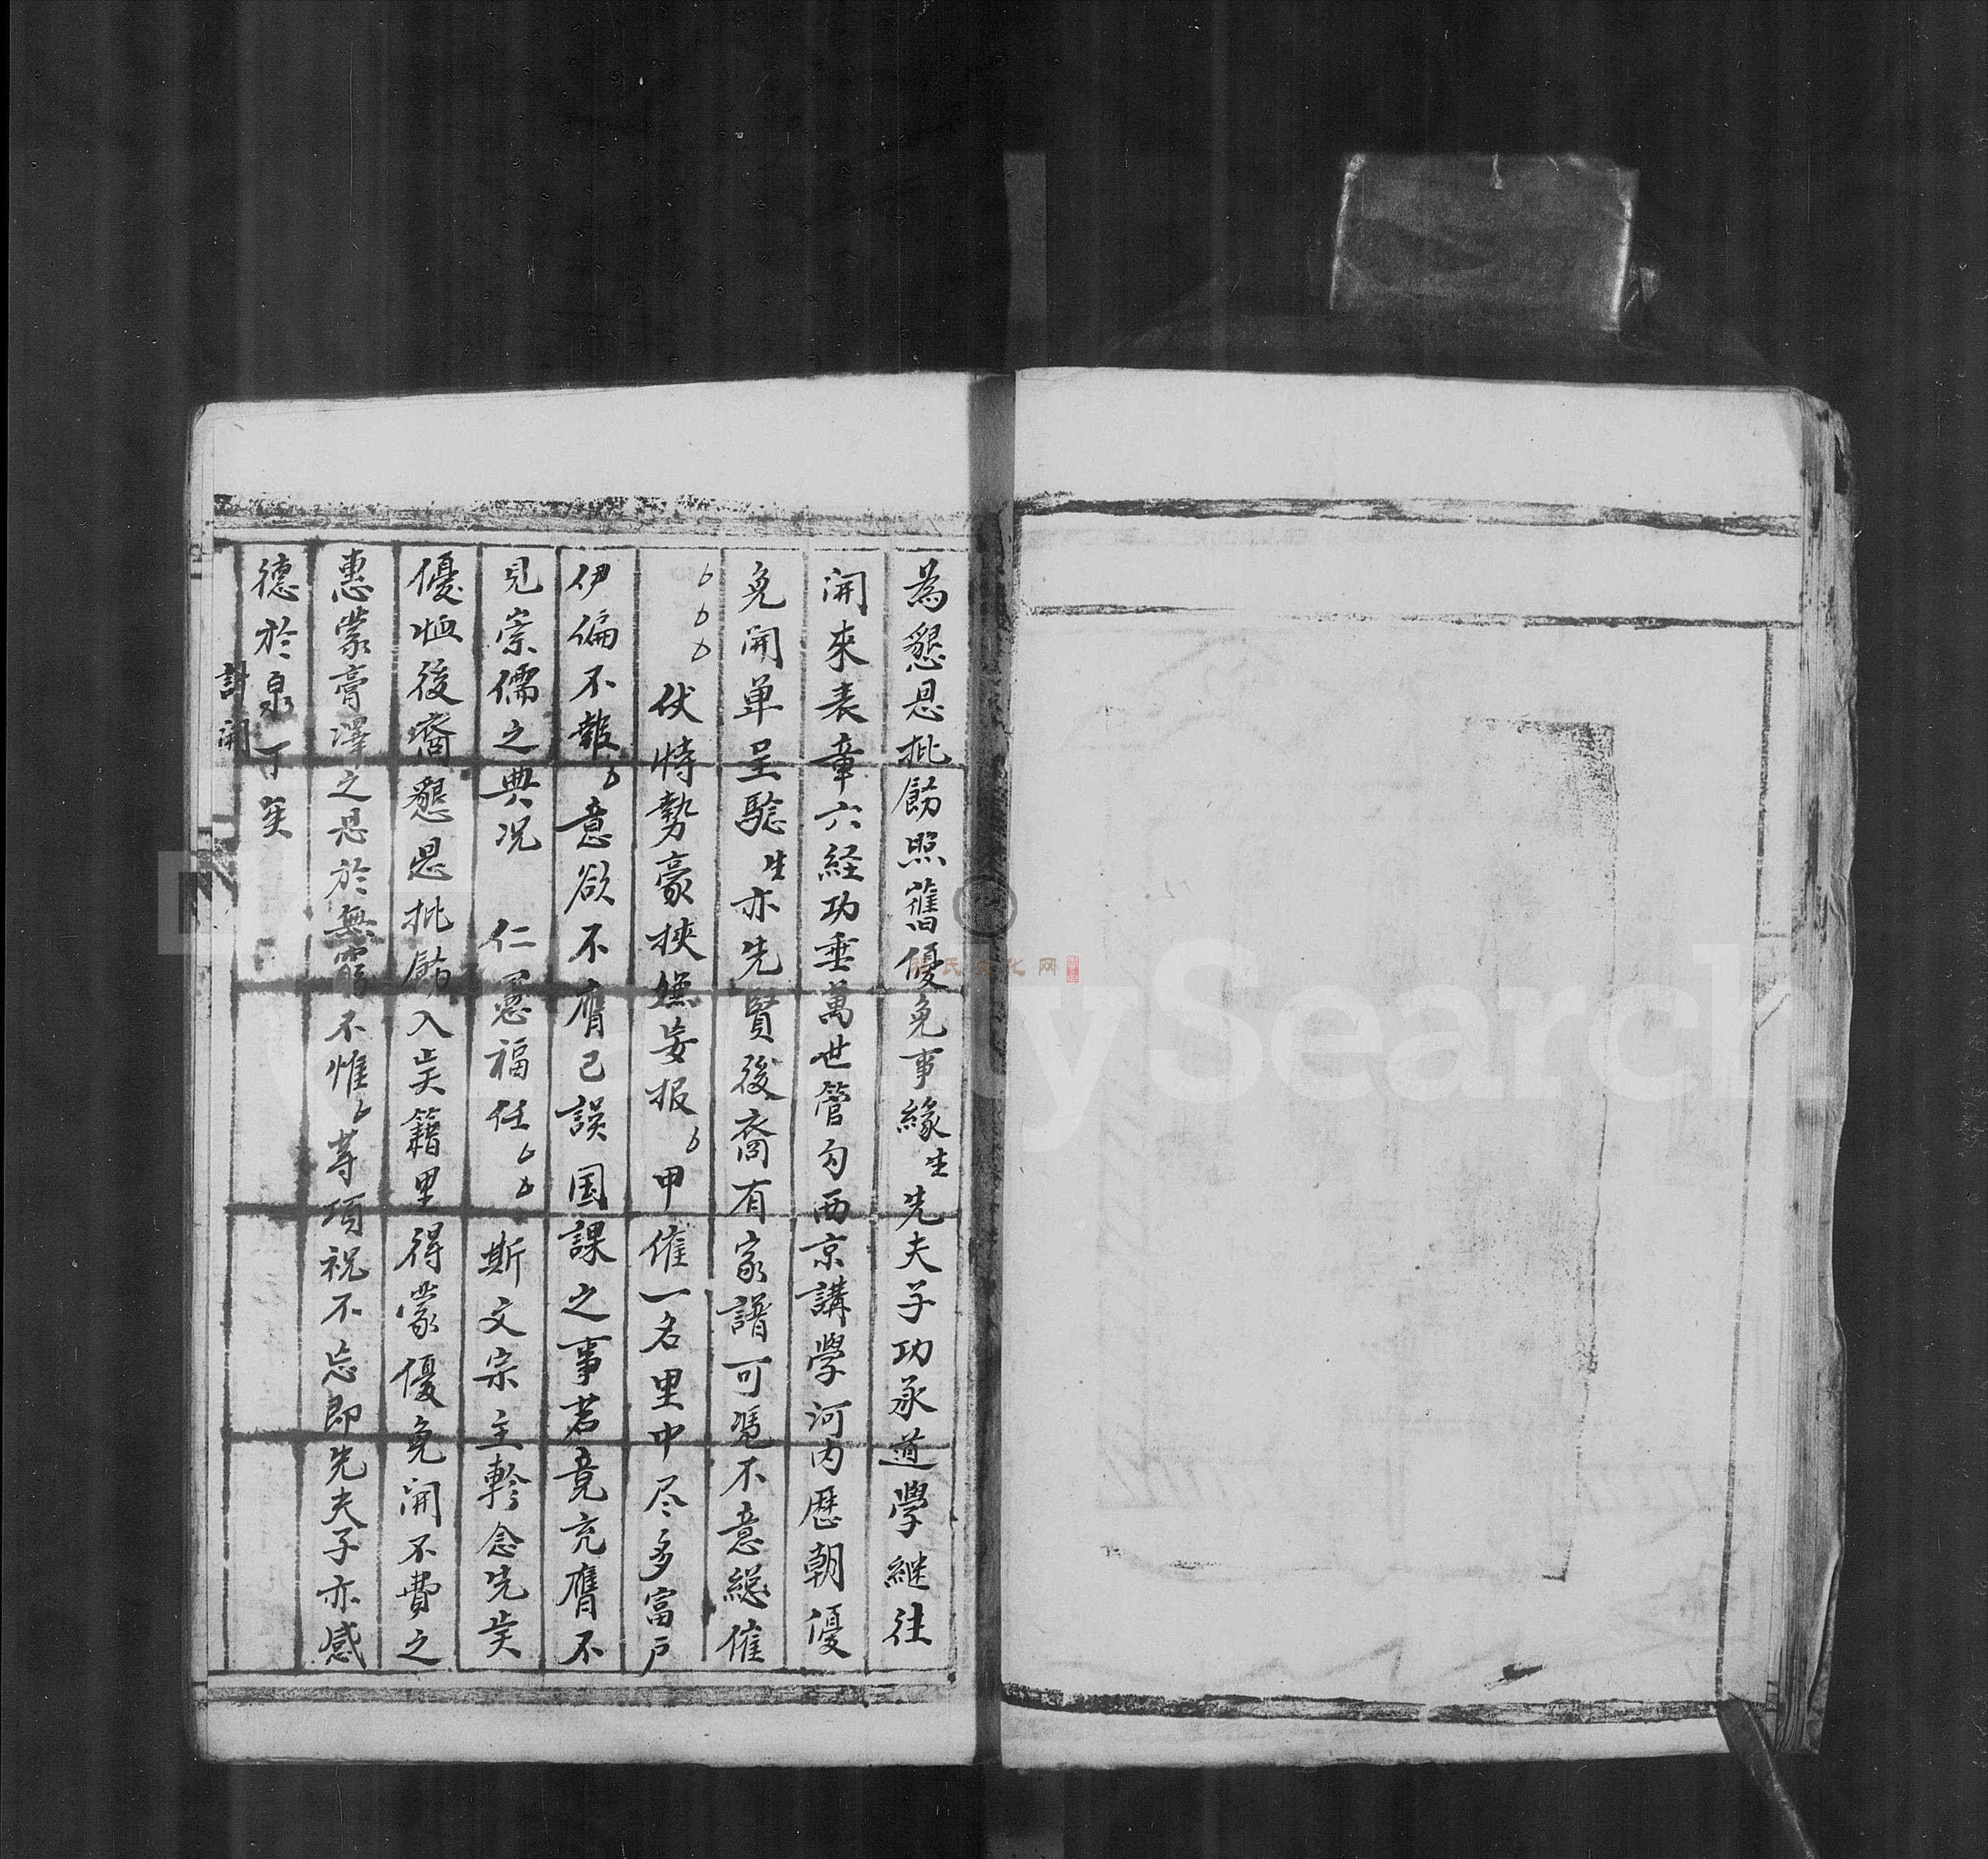 為懇恩批飭照舊優免事緣生先夫子功承道學継往
開來表章六経功垂萬世管勾西京講學河内歷朝優
免開单呈騐生亦先賢後裔有家譜可凴不意総催
伏恃勢豪挾嫌妄报甲催一名里中尽多富户
伊偏不報意欲不膺已誤国課之事若竟充膺不
見崇儒之典况 仁憲福任 斯文宗主軫念先矦
優恤後裔懇恩批飭入矦籍里得蒙優免開不費之
惠蒙膏澤之恩於無窮不惟等項祝不忘即先夫子亦感
德於泉下矣
計開
Search